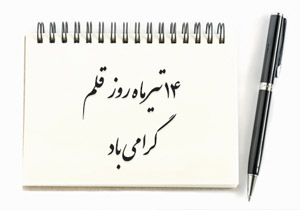 ۱۴ تیرماه روز قلم
گرامی باد